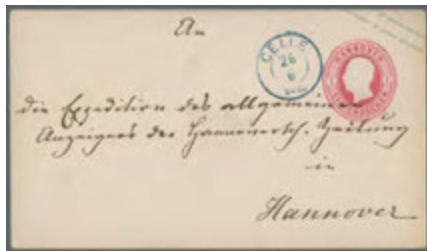 An
CELLE
26
die Expedition des allgemeinen
Anzeigers der Hannoversch. Zeitung
in
Hannover
HANNOVER